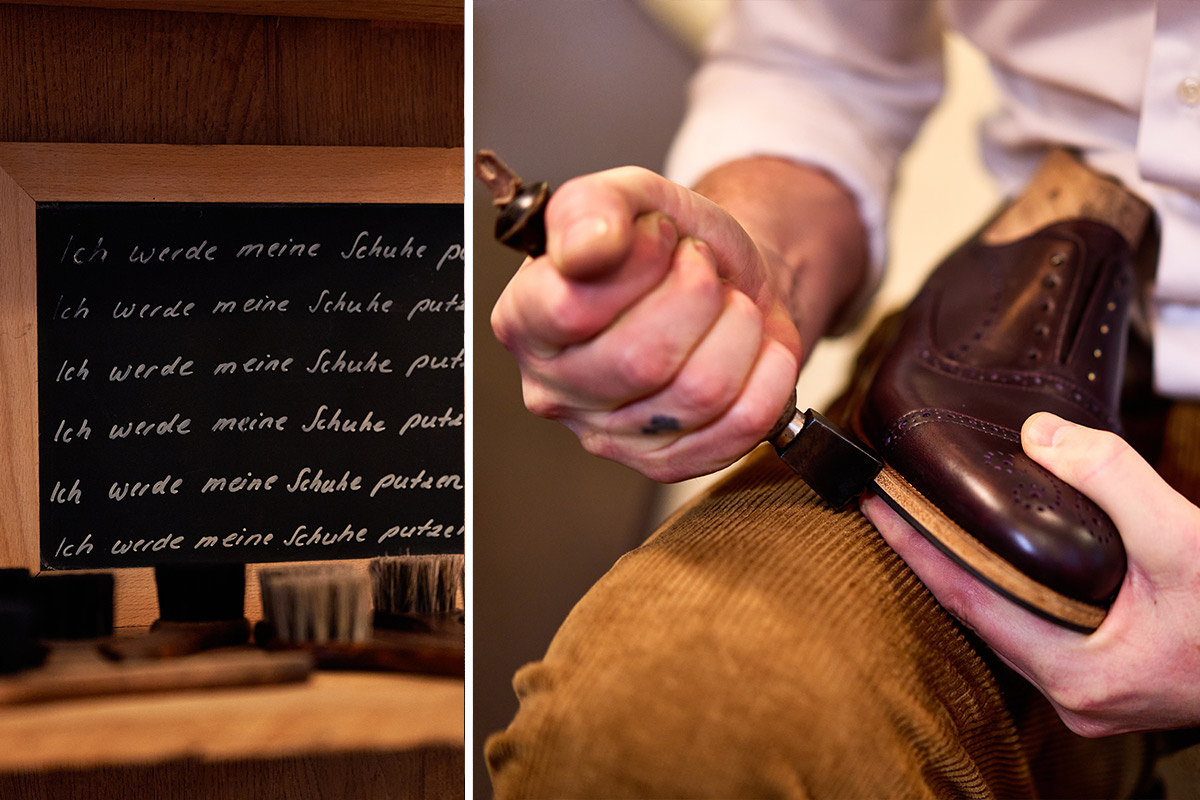 Ich werde meine Schuhe pu
Ich werde meine Schuhe putz
Ich werde meine Schuhe putz
Ich werde meine Schuhe putze
Ich werde meine Schuhe putzen
Ich werde meine Schuhe putzen